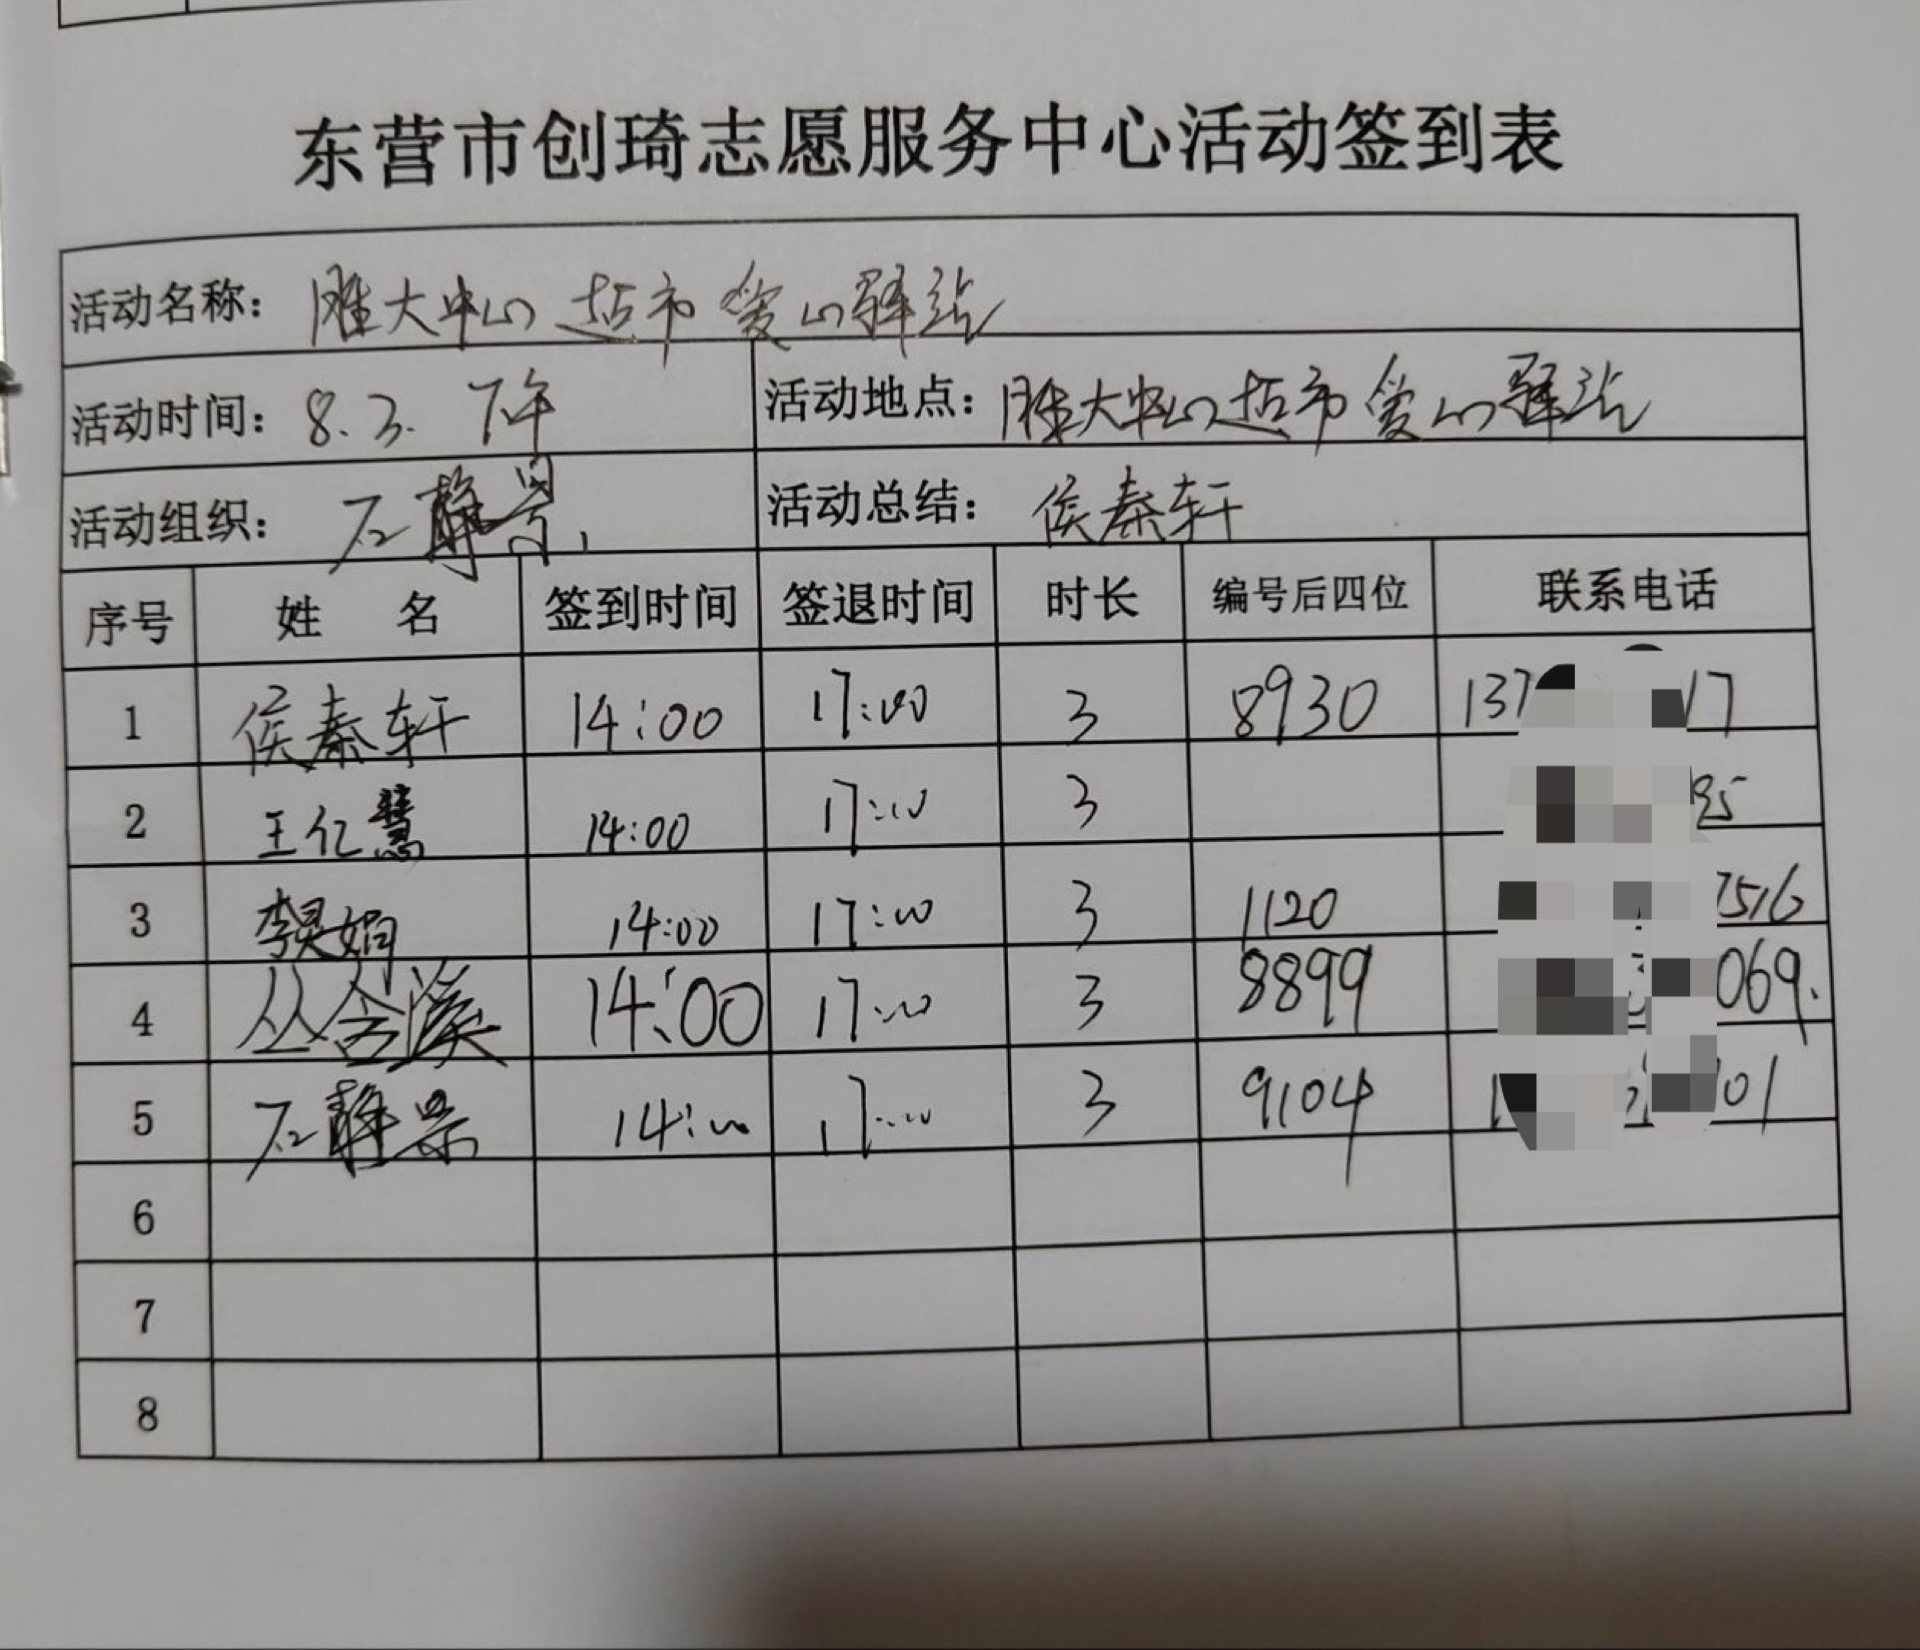 东营市创琦志愿服务中心活动签到表
活动名称: 胜大中心超市爱心驿站
活动时间: 8.3. 下午 活动地点: 胜大中心超市爱心驿站
活动组织: 石静 活动总结: 侯秦轩
序号 姓 名 签到时间 签退时间 时长 编号后四位 联系电话
1 侯秦轩 14:00 17:00 3 8930 137 17
2 王亿慧 14:00 17:00 3
3 李 娟 14:00 17:00 3 1120 7516
4 丛含溪 14:00 17:00 3 8899 069.
5 石静 14:00 17:00 3 9104 01
6
7
8